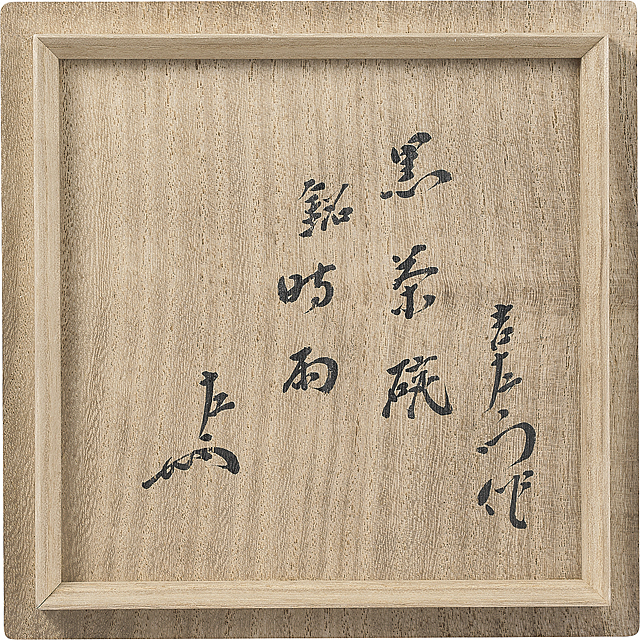 吉左衛門作
黒茶碗
銘時雨
左